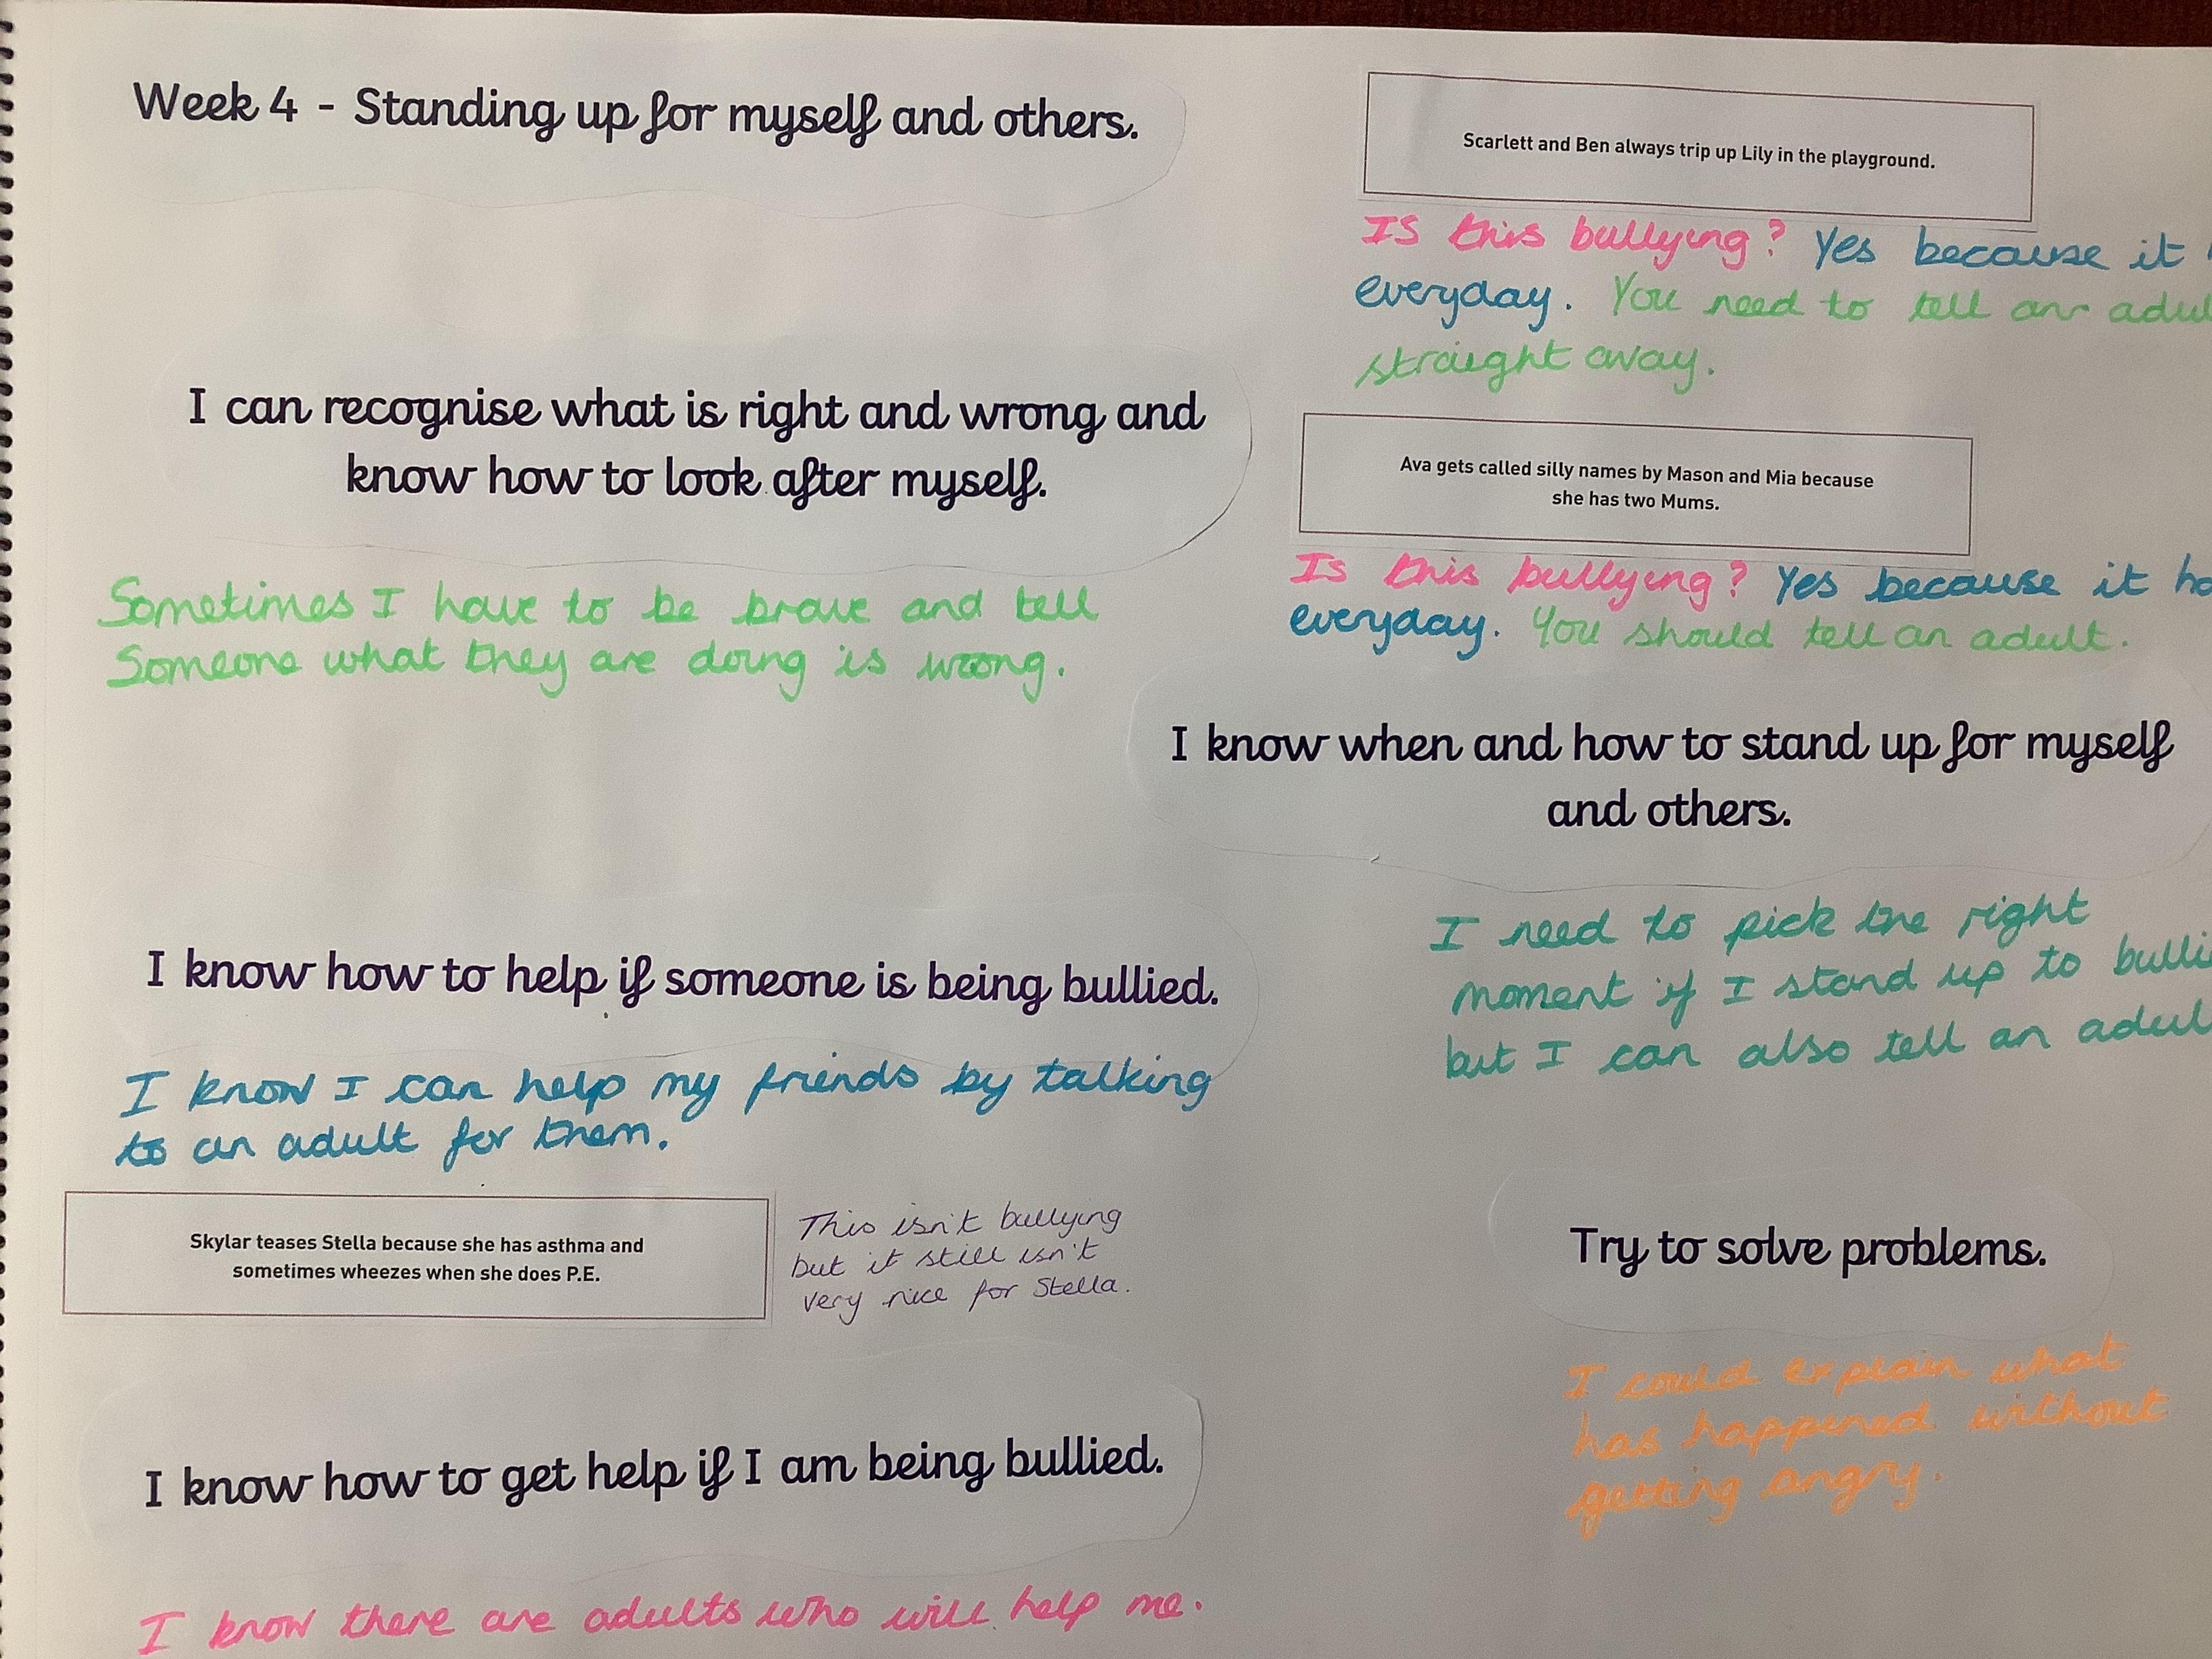 Week 4 - Standing up for myself and others.
I can recognise what is right and wrong and
know how to look after myself.
Sometimes I have to be brave and tell
Someone what they are doing is wrong.
I know how to help if someone is being bullied.
I know I can help my friends by talking
to an adult for them.
Skylar teases Stella because she has asthma and
sometimes wheezes when she does P.E.
This isn't bullying
but it still isn't
very nice for Stella.
I know how to get help if I am being bullied.
I know there are adults who will help me.
Scarlett and Ben always trip up Lily in the playground.
Is this bullying? Yes because it
everyday. You need to tell an
straight away.
Ava gets called silly names by Mason and Mia because
she has two Mums.
Is this bullying? Yes because it
everyday. You should tell an adult.
I know when and how to stand up for myself
and others.
I need to pick the right
moment if I stand up to
but I can also tell an
Try to solve problems.
I could explain what
has happened without
getting angry.